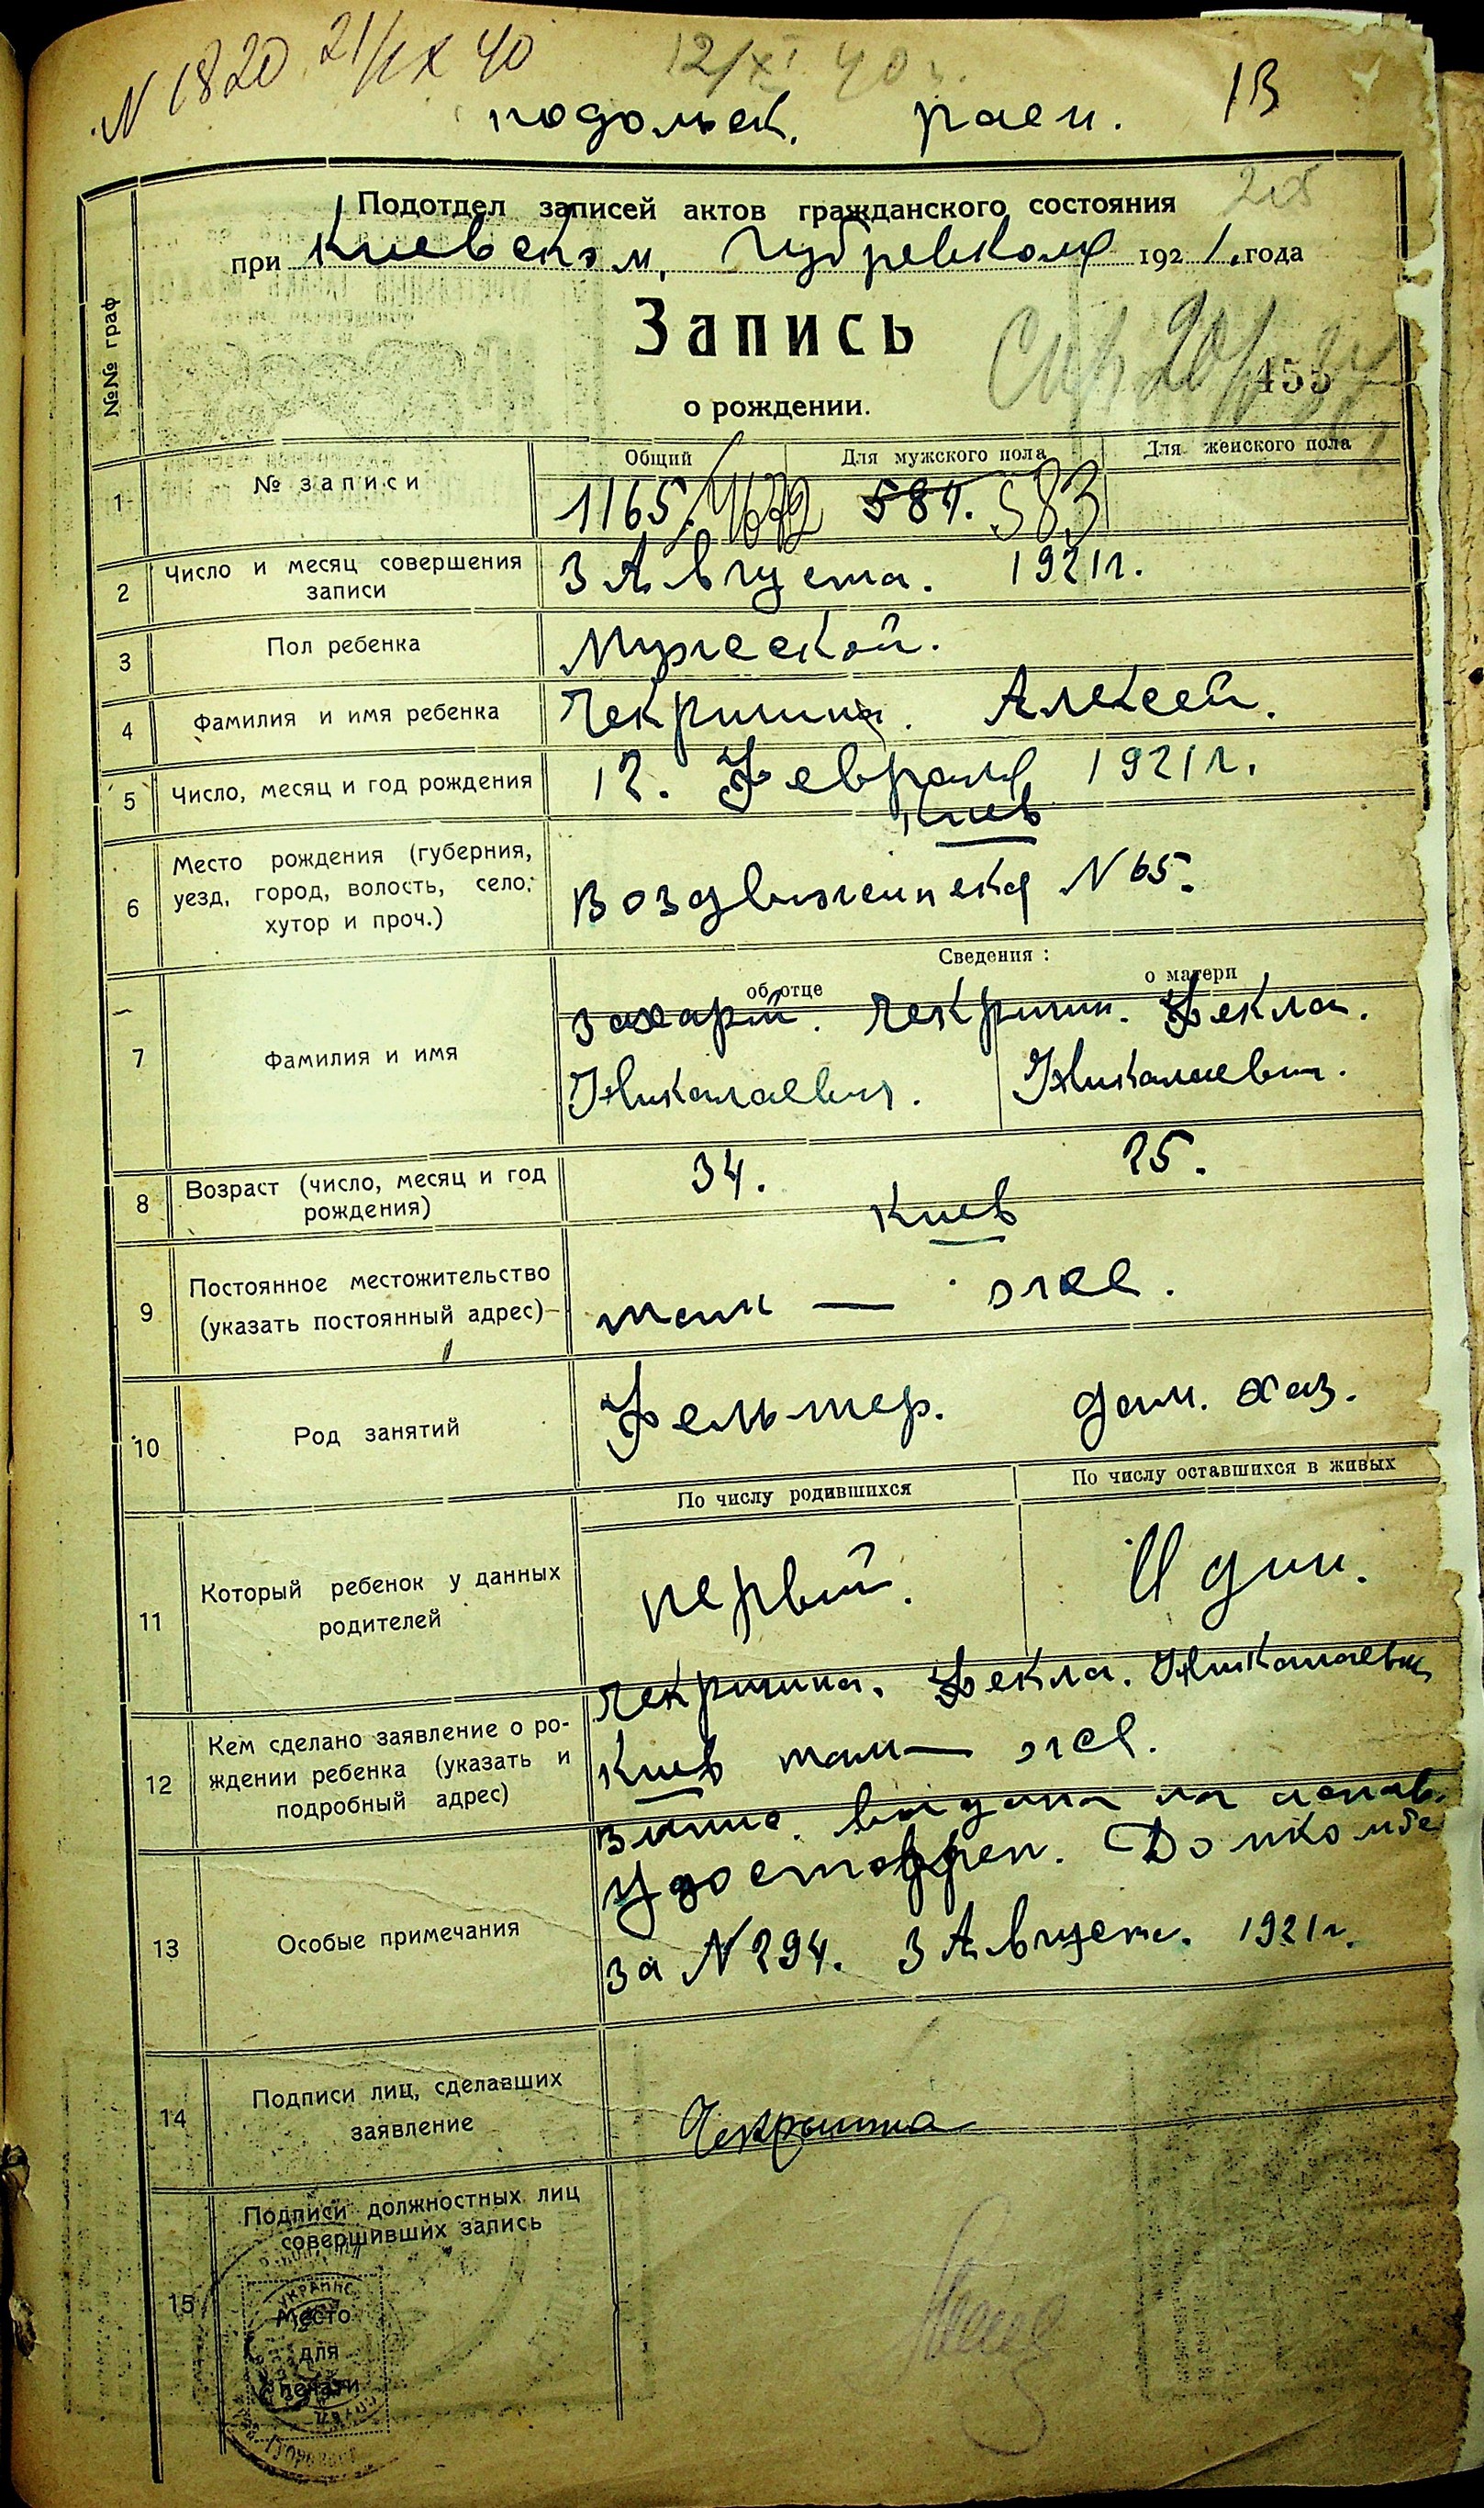 N 1820 21/IX 40
12/XI 40 г.
1В
подольск. раен.
Подотдел записей актов гражданского состояния
при Киевском, Губревкоме 1921. года
№№ граф
Запись
455
о рождении.
Общий Для мужского пола Для женского пола
1 № записи 1165. 584. 583
2 Число и месяц совершения записи 3 Августа. 1921г.
3 Пол ребенка Мужеской.
4 Фамилия и имя ребенка Чекришин. Алексей.
5 Число, месяц и год рождения 12. Февраля 1921г.
Киев
6 Место рождения (губерния,
уезд, город, волость, село,
хутор и проч.)
Воздвиженпская N 65.
Сведения:
об отце о матери
7 Фамилия и имя
Захарий. Чекришин. Фекла.
Николаевич. Николаевн.
8 Возраст (число, месяц и год
рождения)
34. 25.
Киев
9 Постоянное местожительство
(указать постоянный адрес)
там — же.
10 Род занятий Фельшер. дом. хаз.
По числу родившихся По числу оставшихся в живых
11 Который ребенок у данных
родителей
первый. Один.
12 Кем сделано заявление о ро-
ждении ребенка (указать и
подробный адрес)
Чекришина. Фекла. Николаевн
Киев там — же.
13 Особые примечания
выдана на основ.
Удостоврен. Домкомбе
за N 294. 3 Август. 1921г.
14 Подписи лиц, сделавших
заявление
Чекришина
15 Подписи должностных лиц
совершивших запись
Место
для
печати